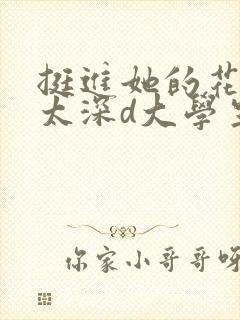 挺進她的花
太深d大學生
你家小哥哥呀